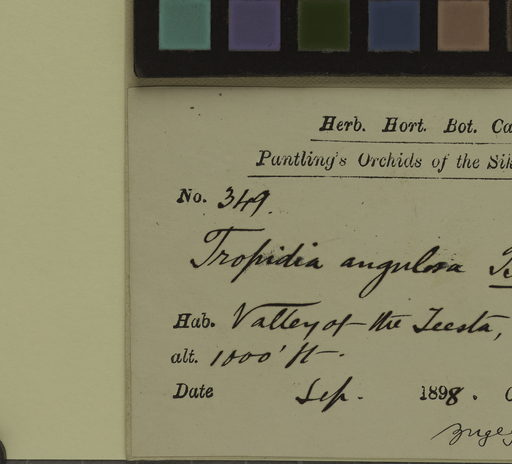 Herb. Hort. Bot. Ca
Pantling's Orchids of the Sik
No. 349.
Tropidia angulosa
Hab. Valley of the Teesta,
alt. 1000' ft.
Date Sep. 1898.